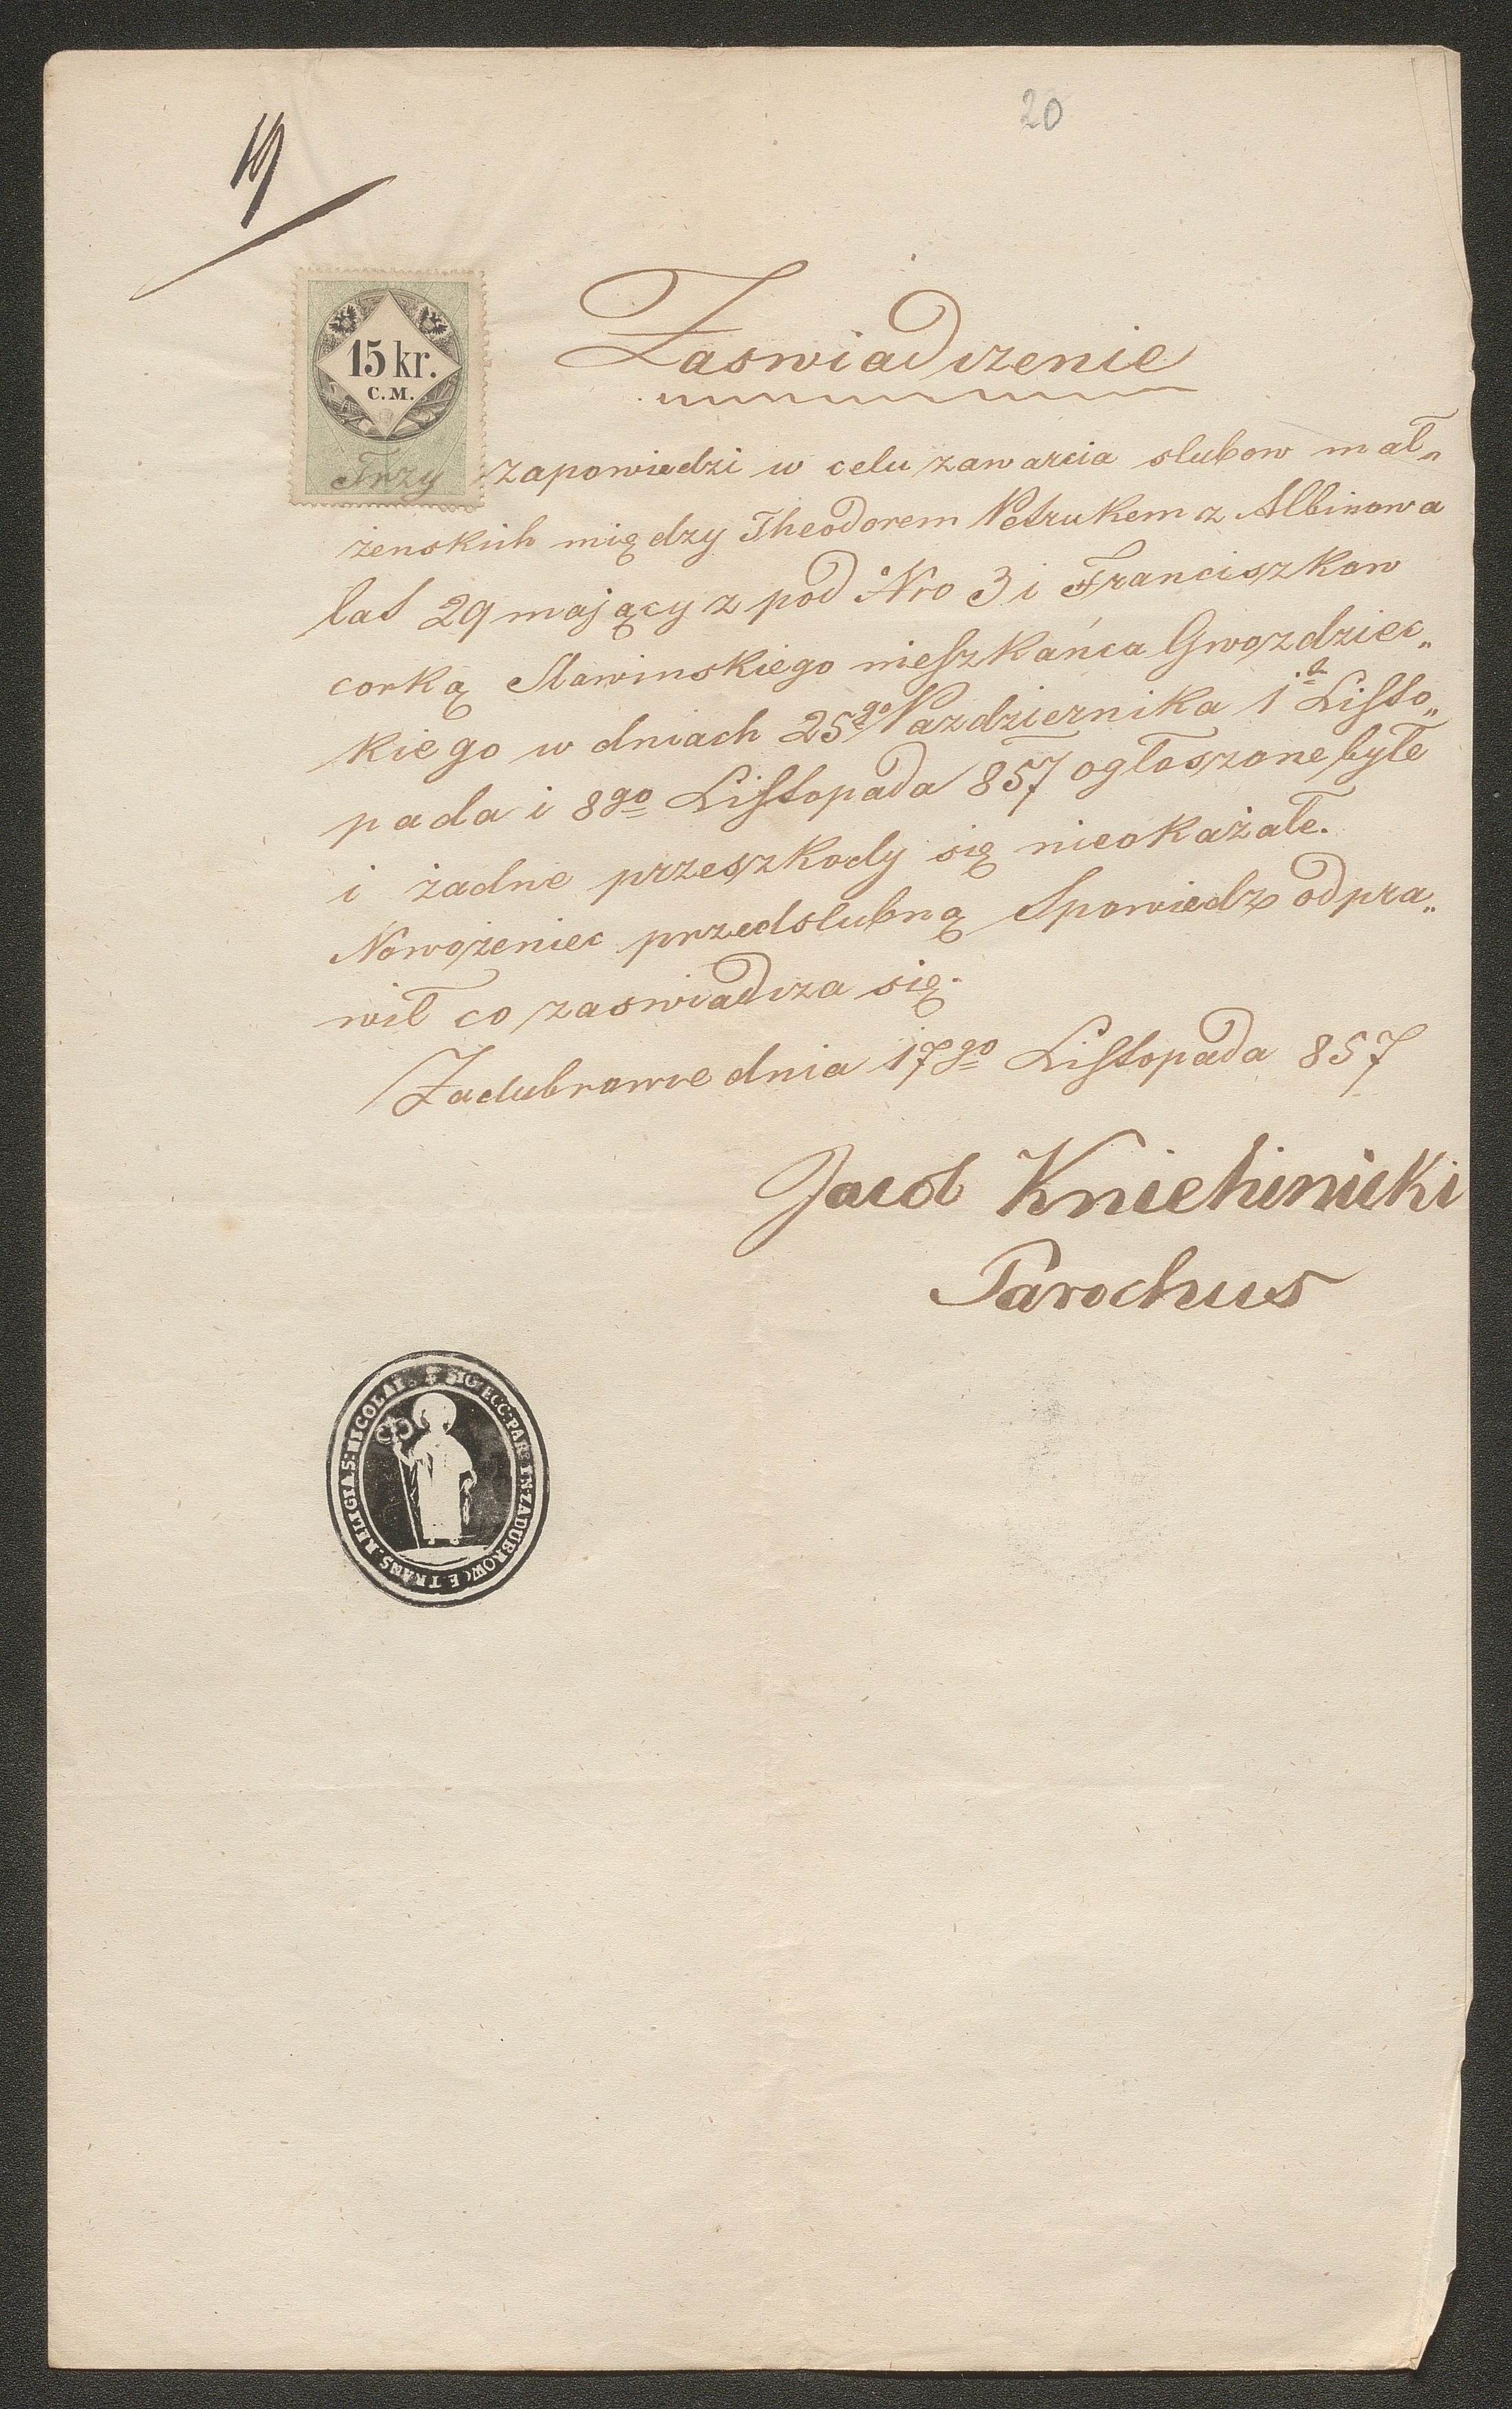 20
19
15 kr.
C.M.
Zaswiadczenie
Trzy zapowiedzi w celu zawarcia slubow mał„
żenskich między Theodorem Petrukem z Albinowa
lat 29 mający z pod Nro 3 i Franciszkow
corką Slawinskiego mieszkańca Gwozdziec„
kiego w dniach 25go Pazdziernika 1 Listo„
pada i 8go Listopada 857 ogłoszone byłe
i żadne przeszkody się nieokażałe.
Nowożeniec przedslubną Spowiedz odpra„
wił co zaswiadcza się.
Zadubrowce dnia 17go Listopada 857
Jacob Kniehinicki
Parochus
SIG: ECC: PAR: IN ZADUBROWCE TRANS. RELIGIA S: NICOLAI.